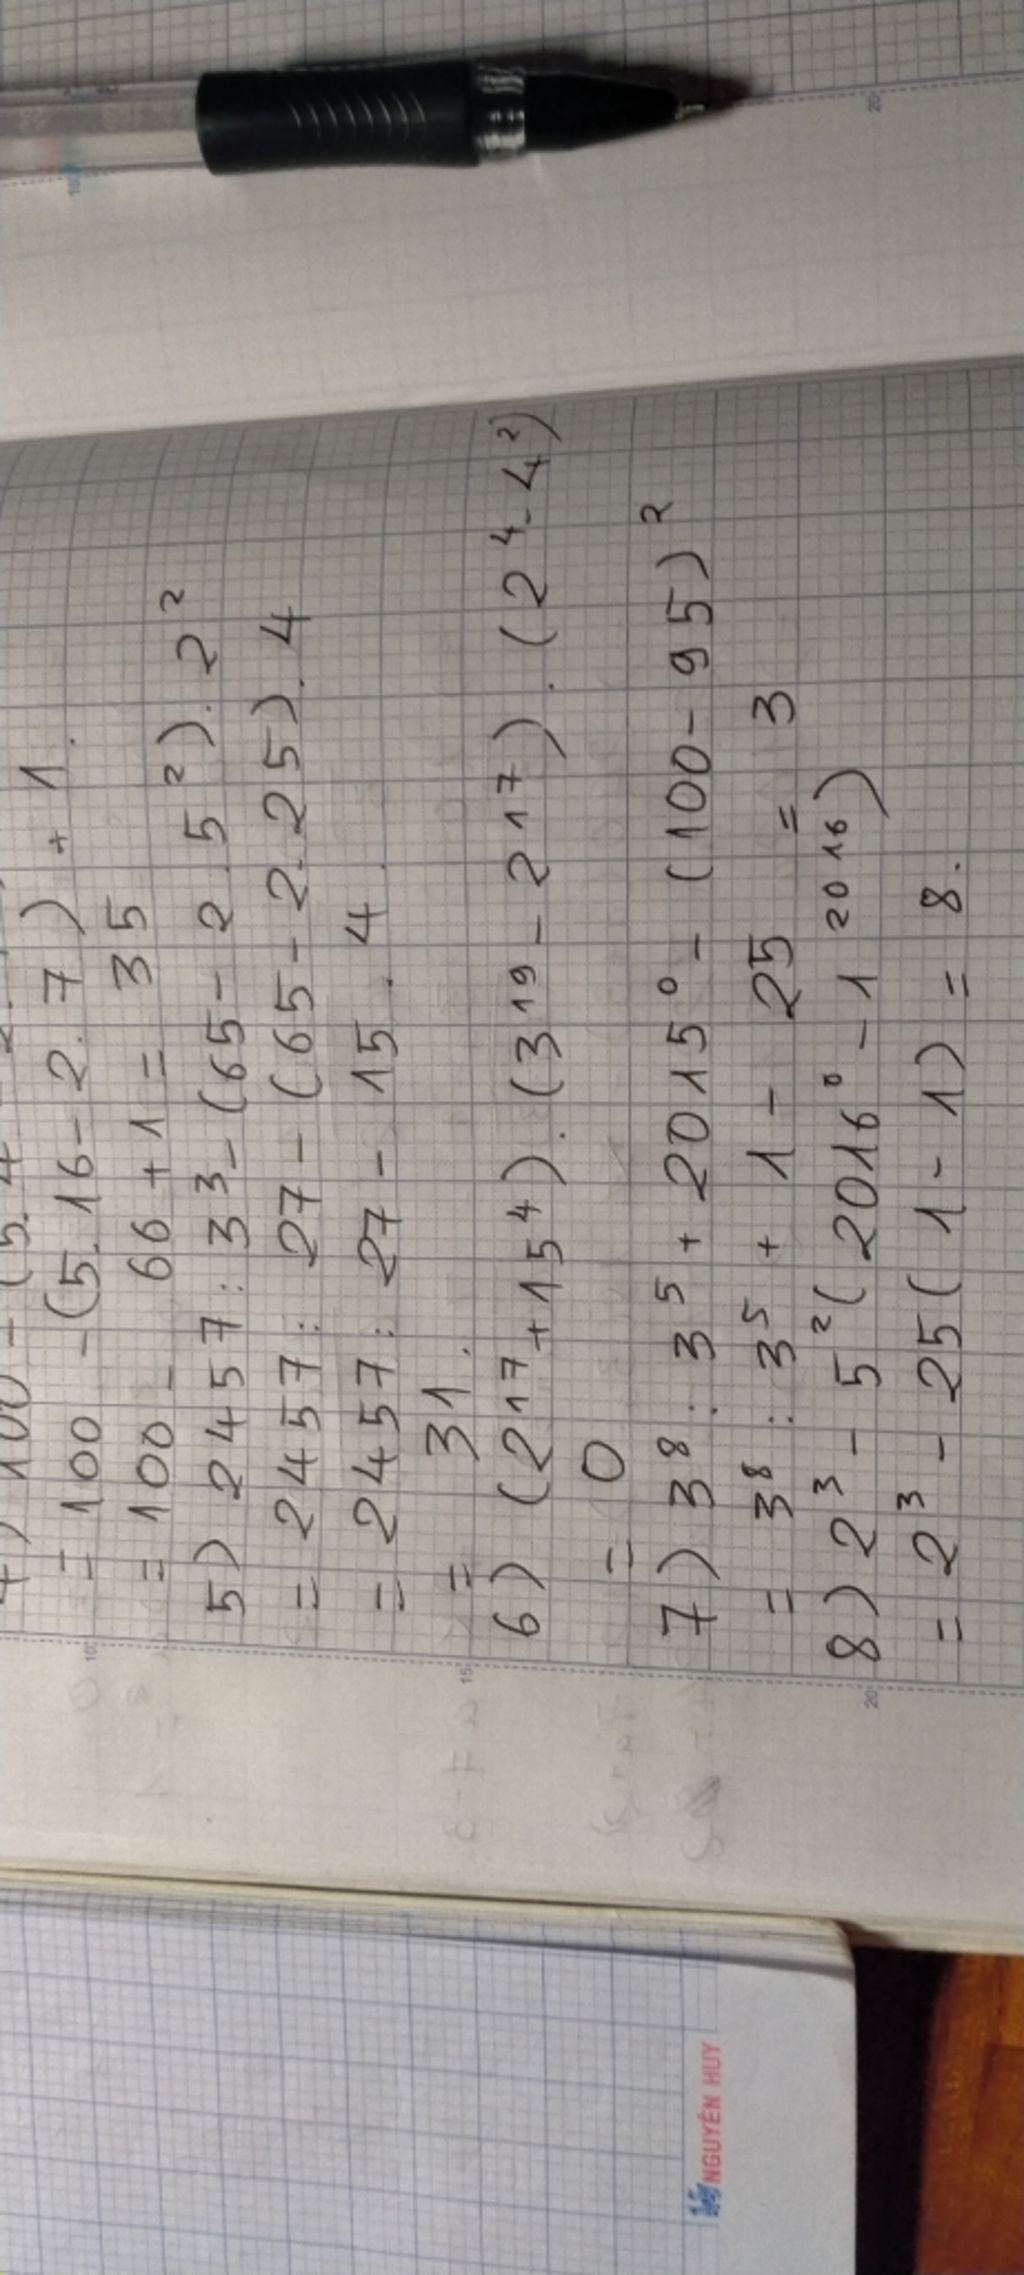 4) 100 - (5.4
= 100 - (5.16 - 2.7) + 1.
= 100 - 66 + 1 = 35
5) 2457 : 3³ - (65 - 2.5²).2²
= 2457 : 27 - (65 - 2.25).4
= 2457 : 27 - 15.4.
= 31.
6) (2¹⁷ + 15⁴).(3¹⁹ - 2¹⁷).(2⁴ - 4²)
= 0
7) 3⁸ : 3⁵ + 2015⁰ - (100 - 95)²
= 3⁸ : 3⁵ + 1 - 25 = 3
8) 2³ - 5²(2016⁰ - 1²⁰¹⁶)
= 2³ - 25(1 - 1) = 8.
10
15
20
20
NGUYÊN HUY